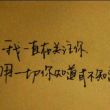 我一直在关注你
用一切你知道或不知道